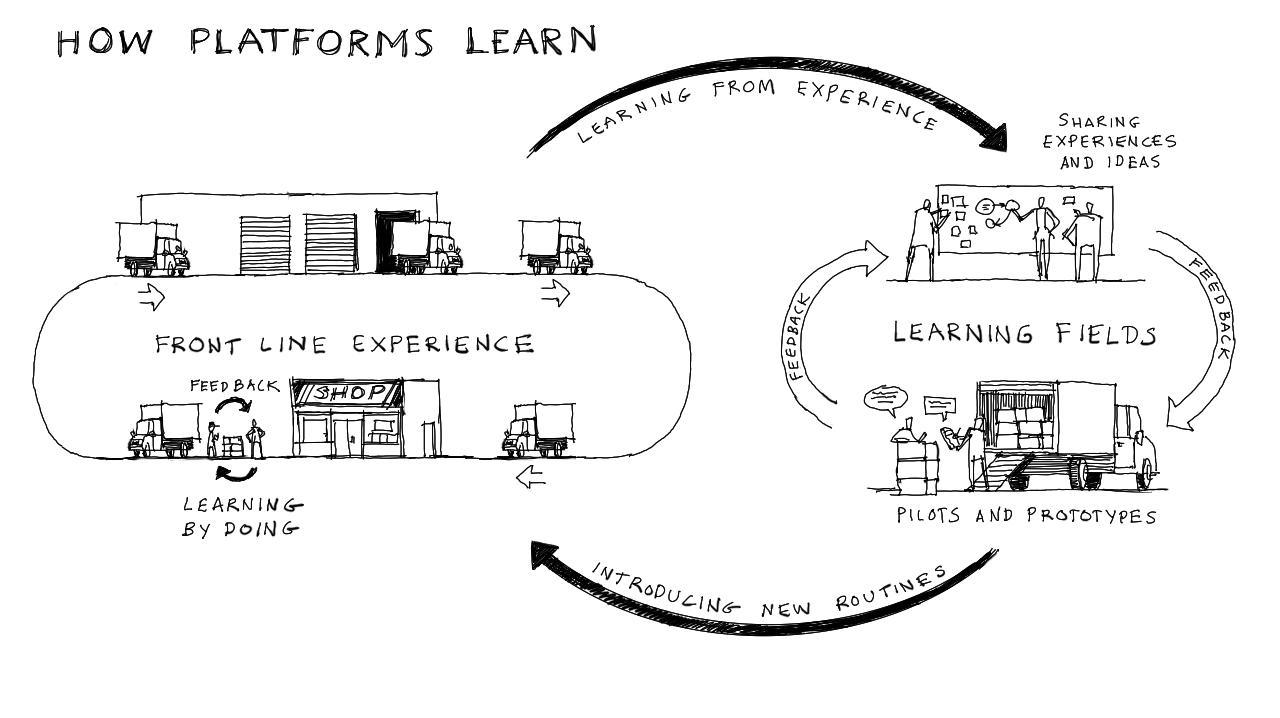 HOW PLATFORMS LEARN
LEARNING FROM EXPERIENCE
SHARING
EXPERIENCES
AND IDEAS
FRONT LINE EXPERIENCE
FEEDBACK
SHOP
LEARNING
BY DOING
FEEDBACK
FEEDBACK
LEARNING FIELDS
PILOTS AND PROTOTYPES
INTRODUCING NEW ROUTINES